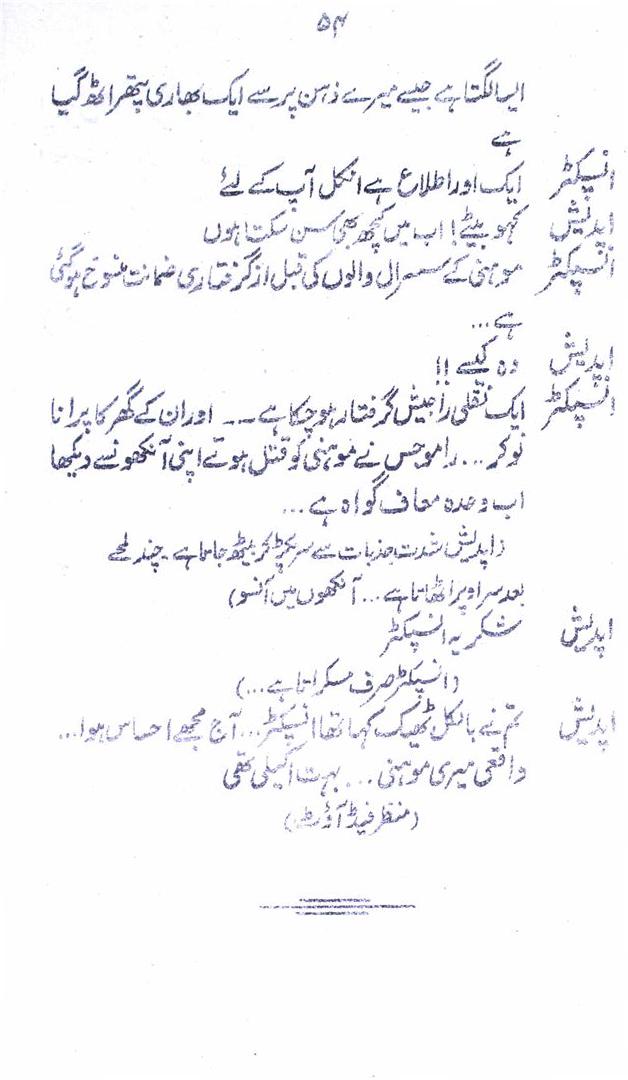 ۵۴
ایسا لگتا ہے جیسے میرے ذہن پر سے ایک بھاری پتھر اٹھ گیا
ہے
انسپکٹر ایک اور اطلاع ہے انکل آپ کے لئے
اپدیش کہو بیٹے! اب میں کچھ بھی سن سکتا ہوں
انسپکٹر موہنی کے سسرال والوں کی قبل از گرفتاری ضمانت منسوخ ہو گئی
ہے...
اپدیش وہ کیسے !!
انسپکٹر ایک نقلی راجیش گرفتار ہو چکا ہے۔۔ اور ان کے گھر کا پرانا
نوکر... راموجس نے موہنی کو قتل ہوتے اپنی آنکھوں سے دیکھا
اب وعدہ معاف گواہ ہے...
(اپدیش شدت جذبات سے سر پکڑ کر بیٹھ جاتا ہے۔ چند لمحے
بعد سر اوپر اٹھاتا ہے... آنکھوں میں آنسو)
اپدیش شکریہ انسپکٹر
(انسپکٹر صرف مسکراتا ہے...)
اپدیش تم نے بالکل ٹھیک کہا تھا انسپکٹر... آج مجھے احساس ہوا...
واقعی میری موہنی... بہت اکیلی تھی
(منظر فیڈ آؤٹ)